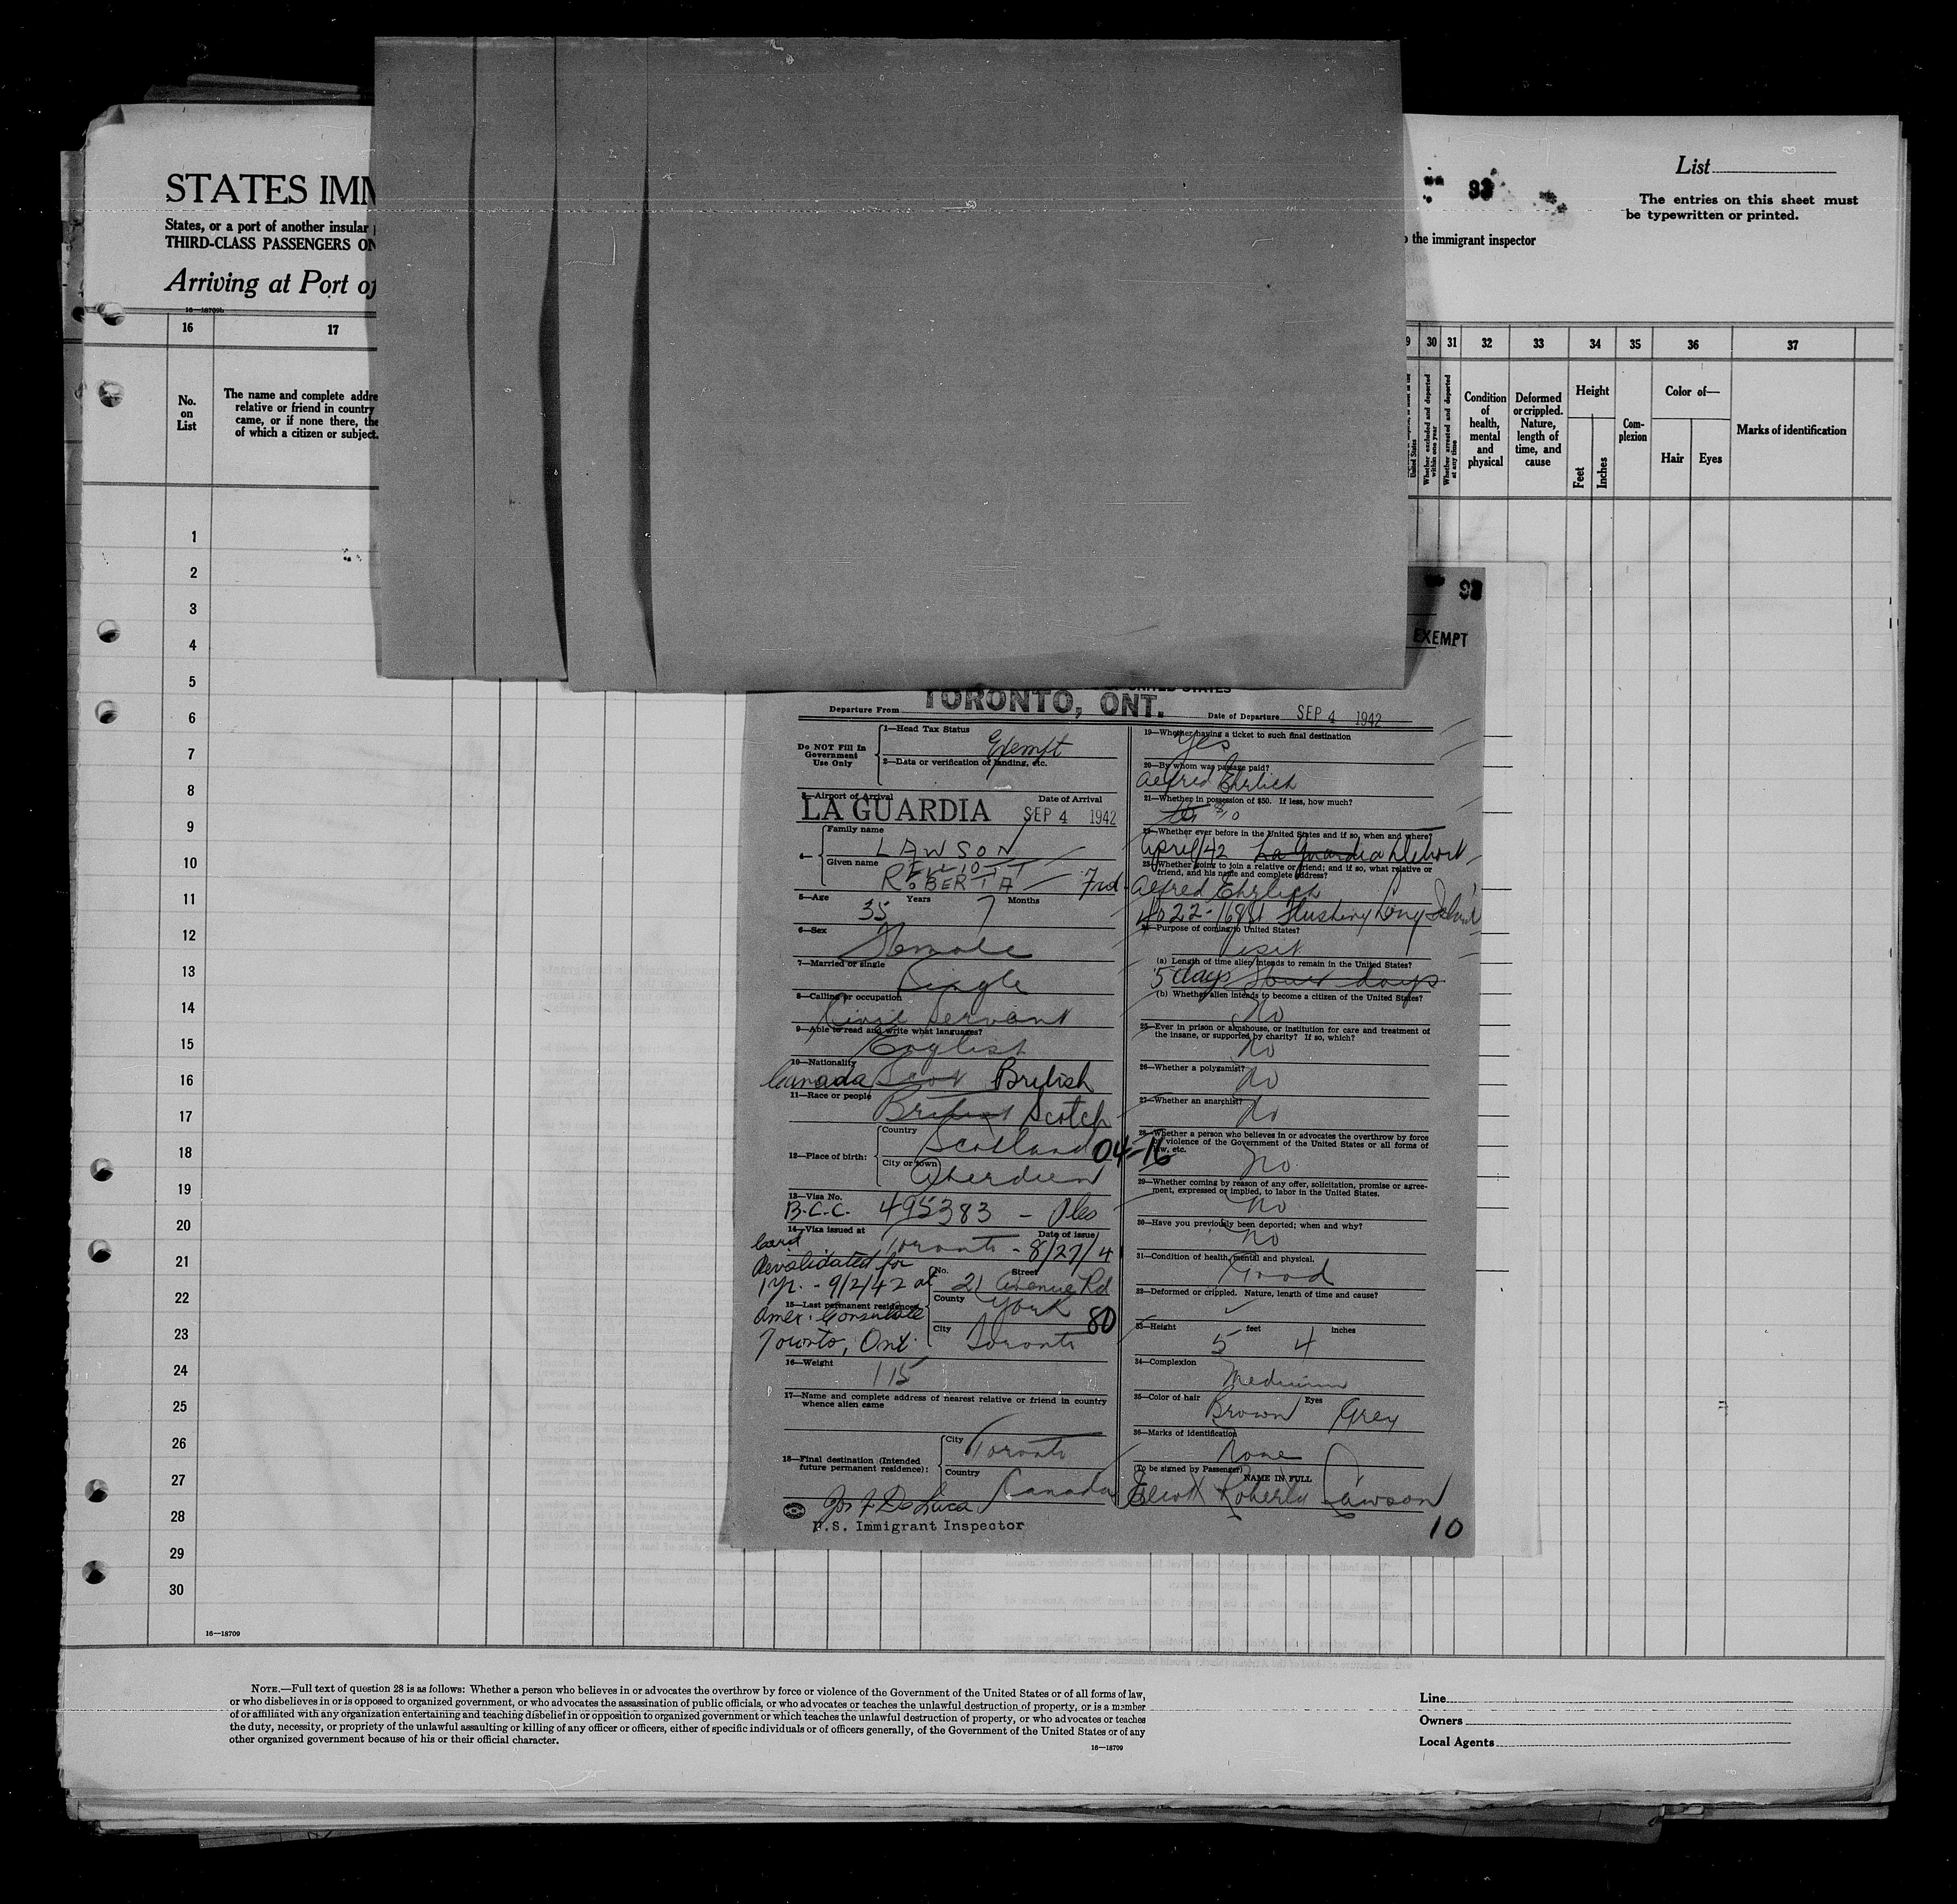 STATES IMM
States, or a port of another insular
THIRD-CLASS PASSENGERS ON
Arriving at Port of
93
List
The entries on this sheet must
be typewritten or printed.
the immigrant inspector
16—18709b
16
17
30
31
32
33
34
35
36
37
No.
on
List
The name and complete addre
relative or friend in country
came, or if none there, the
of which a citizen or subject.
United States
Whether excluded and deported
within one year
Whether arrested and deported
at any time
Condition
of
health,
mental
and
physical
Deformed
or crippled.
Nature,
length of
time, and
cause
Height
Feet
Inches
Com-
plexion
Color of—
Hair
Eyes
Marks of identification
1
2
3
4
5
6
7
8
9
10
11
12
13
14
15
16
17
18
19
20
21
22
23
24
25
26
27
28
29
30
EXEMPT
Departure From TORONTO, ONT. Date of Departure SEP 4 1942
Do NOT Fill In
Government
Use Only
1—Head Tax Status
Exempt
2—Data or verification of landing, etc.
3—Airport of Arrival Date of Arrival
LA GUARDIA SEP 4 1942
4— Family name
LAWSON
Given name ELLIOTT
ROBERTA
5—Age 35 Years 7 Months
6—Sex
Female
7—Married or single
Single
8—Calling or occupation
Civil Servant
9—Able to read and write what languages?
English
10—Nationality
Canada Scot British
11—Race or people
British Scotch
12—Place of birth:
Country
Scotland 04-16
City or town
Aberdeen
13—Visa No.
B.C.C. 495383 -
14—Visa issued at Date of issue
Toronto - 8/27/4
Card
Revalidated for
1 yr. - 9/2/42 at
Amer. Consulate
Toronto, Ont.
15—Last permanent residence:
No. Street
21 Avenue Rd
County York 80
City Toronto
16—Weight
115
17—Name and complete address of nearest relative or friend in country
whence alien came
18—Final destination (Intended
future permanent residence):
City Toronto
Country Canada
Jos F. De Luca
U.S. Immigrant Inspector
19—Whether having a ticket to such final destination
Yes
20—By whom was passage paid?
Alfred Ehrlich
21—Whether in possession of $50. If less, how much?
$10
22—Whether ever before in the United States and if so, when and where?
April/42 La Guardia Detroit
23—Whether going to join a relative or friend; and if so, what relative or
friend, and his name and complete address?
Frd Alfred Ehrlich
4022-168 St Flushing Long Island
24—Purpose of coming to United States?
Visit
(a) Length of time alien intends to remain in the United States?
5 days Four days
(b) Whether alien intends to become a citizen of the United States?
No
25—Ever in prison or almshouse, or institution for care and treatment of
the insane, or supported by charity? If so, which?
No
26—Whether a polygamist?
No
27—Whether an anarchist?
No
28—Whether a person who believes in or advocates the overthrow by force
or violence of the Government of the United States or all forms of
law, etc.
No
29—Whether coming by reason of any offer, solicitation, promise or agree-
ment, expressed or implied, to labor in the United States.
No
30—Have you previously been deported; when and why?
No
31—Condition of health, mental and physical.
Good
32—Deformed or crippled. Nature, length of time and cause?
33—Height
5 feet 4 inches
34—Complexion
Medium
35—Color of hair Eyes
Brown Grey
36—Marks of identification
None
(To be signed by Passenger)
NAME IN FULL
Elliott Roberta Lawson
10
16—18709
NOTE.—Full text of question 28 is as follows: Whether a person who believes in or advocates the overthrow by force or violence of the Government of the United States or of all forms of law,
or who disbelieves in or is opposed to organized government, or who advocates the assassination of public officials, or who advocates or teaches the unlawful destruction of property, or is a member
of or affiliated with any organization entertaining and teaching disbelief in or opposition to organized government or which teaches the unlawful destruction of property, or who advocates or teaches
the duty, necessity, or propriety of the unlawful assaulting or killing of any officer or officers, either of specific individuals or of officers generally, of the Government of the United States or of any
other organized government because of his or their official character.
16—18709
Line
Owners
Local Agents